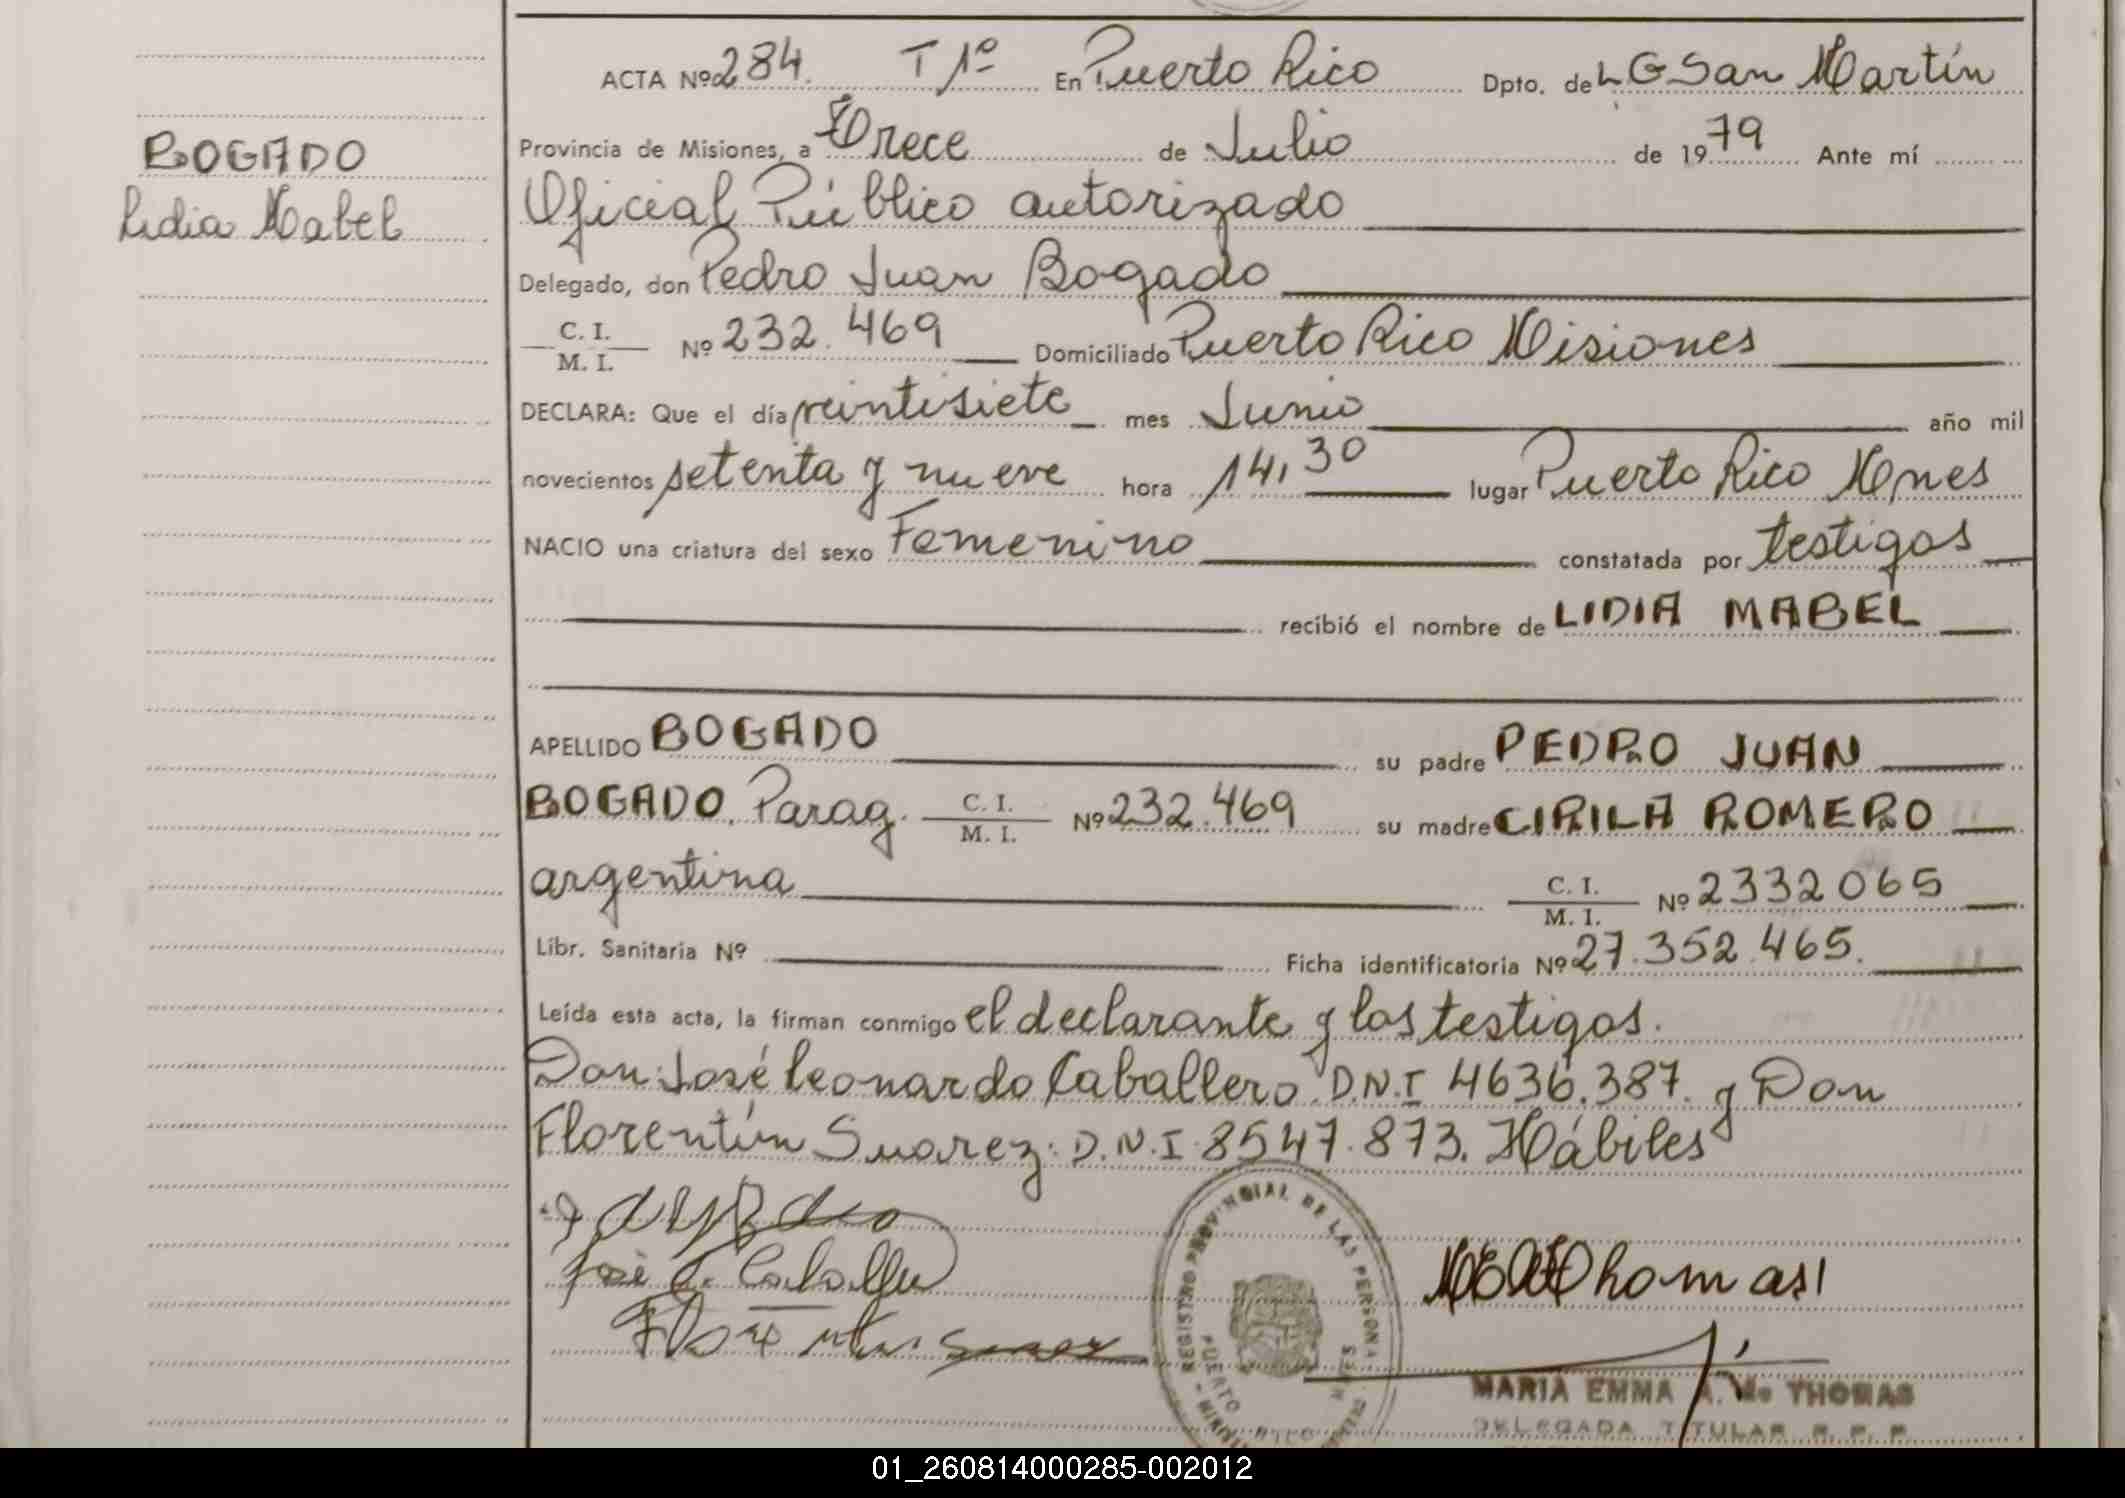 ACTA Nº 284. T 1º En Puerto Rico Dpto. de L G San Martín
BOGADO
Provincia de Misiones, a Trece de Julio de 1979 Ante mí
Lidia Mabel
Oficial Público autorizado
Delegado, don Pedro Juan Bogado
C. I.
M. I.
Nº 232.469 Domiciliado Puerto Rico Misiones
DECLARA: Que el día veintisiete mes Junio año mil
novecientos setenta y nueve hora 14,30 lugar Puerto Rico Mnes
NACIO una criatura del sexo Femenino constatada por testigos
recibió el nombre de LIDIA MABEL
APELLIDO BOGADO su padre PEDRO JUAN
BOGADO. Parag. C. I. M. I. Nº 232.469 su madre CIRILA ROMERO
argentina C. I. M. I. Nº 2332065
Libr. Sanitaria Nº Ficha identificatoria Nº 27.352.465.
Leída esta acta, la firman conmigo el declarante y los testigos.
Don: José Leonardo Caballero. D.N.I 4636.387. y Don
Florentín Suarez: D.N.I. 8547.873. Hábiles
José L. Caballero
REGISTRO PROVINCIAL DE LAS PERSONAS
PUERTO RICO
MARIA EMMA A. de THOMAS
DELEGADA TITULAR R. P. P.
01_260814000285-002012